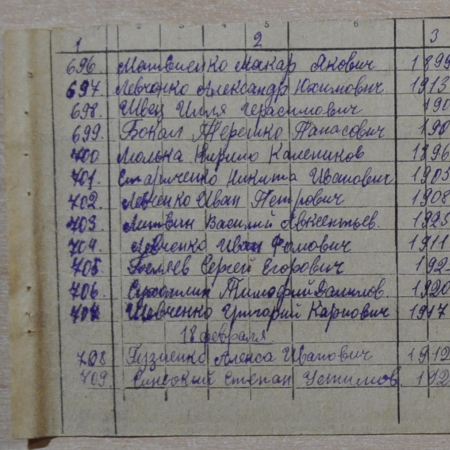 1 2 3
696. Матвиенко Макар Якович 1899
697. Левченко Александр Юхимович 1913
698. Швец Илля Герасимович 190
699. Бокал Терешко Панасович 190
700 Люлька Кирило Калеников 1896
701. Стариченко Никита Иванович 1905
702. Левченко Иван Петрович 1908
703. Литвин Василий Авксентьев. 1925
704. Левченко Иван Фомович 1911
705. Беляев Сергей Егорович 192
706. Тимофей Данилов. 1920
707. Шевченко Григорий Карпович 1917
18 февраля
708 Гузиенко Алекса Иванович 1912
709 Степан Устимов 192